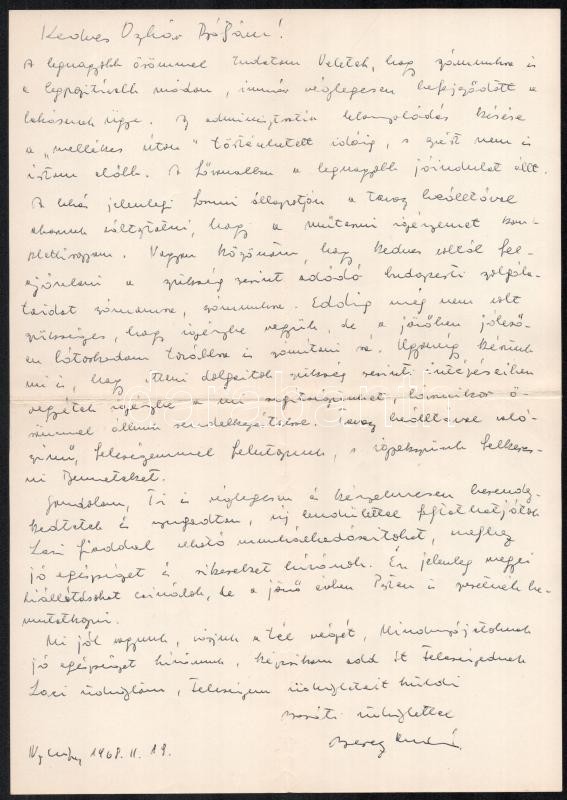 Kedves Oszkár Bátyám!
A legnagyobb örömmel tudatom Veletek, hogy számunkra is
a legpozitívabb módon, immár véglegesen befejeződött a
lakásunk ügye. Az adminisztratív lebonyolódás kérése
a „mellékes úton” történhetett idáig, s ezért nem is
írtam előbb. A a legnagyobb jóindulat állt.
A lakás jelenlegi formai állapotján a tavasz beálltával
akarunk változtatni, hogy a műtermi igényemet kom-
plettírozzam. Nagyon köszönöm, hogy kedves voltál fel-
ajánlani a szükség szerint adódó budapesti szolgála-
taidat számomra, számunkra. Eddig még nem volt
szükséges, hogy igénybe vegyük, de a jövőben jóleső-
en bátorkodom továbbra is számítani rá. Ugyanúgy kérünk
mi is, hogy itteni dolgaitok szükség szerinti intézésében
vegyétek igénybe a mi segítségünket, bármikor ö-
römmel állunk rendelkezésetekre. Tavasz beálltával való-
színű, feleségemmel felutazunk, s igyekszünk felkeres-
ni Benneteket.
Gondolom, Ti is véglegesen és kényelmesen berendez-
kedtetek és nyugodtan, új lendülettel folytathatjátok
Laci fiaddal alkotó munkálkodásaitokat, melyhez
jó egészséget és sikereket kívánok. Én jelenleg megyei
kiállításokat csinálok, de a jövő évben Pesten is szeretnék be-
mutatkozni.
Mi jól vagyunk, várjuk a tél végét, Mindnyájatoknak
jó egészséget kívánunk, kézcsókom add át Feleségednek
Laci üdvözlöm, feleségem üdvözleteit küldi
baráti üdvözlettel
1968. II. 19.
darabanth